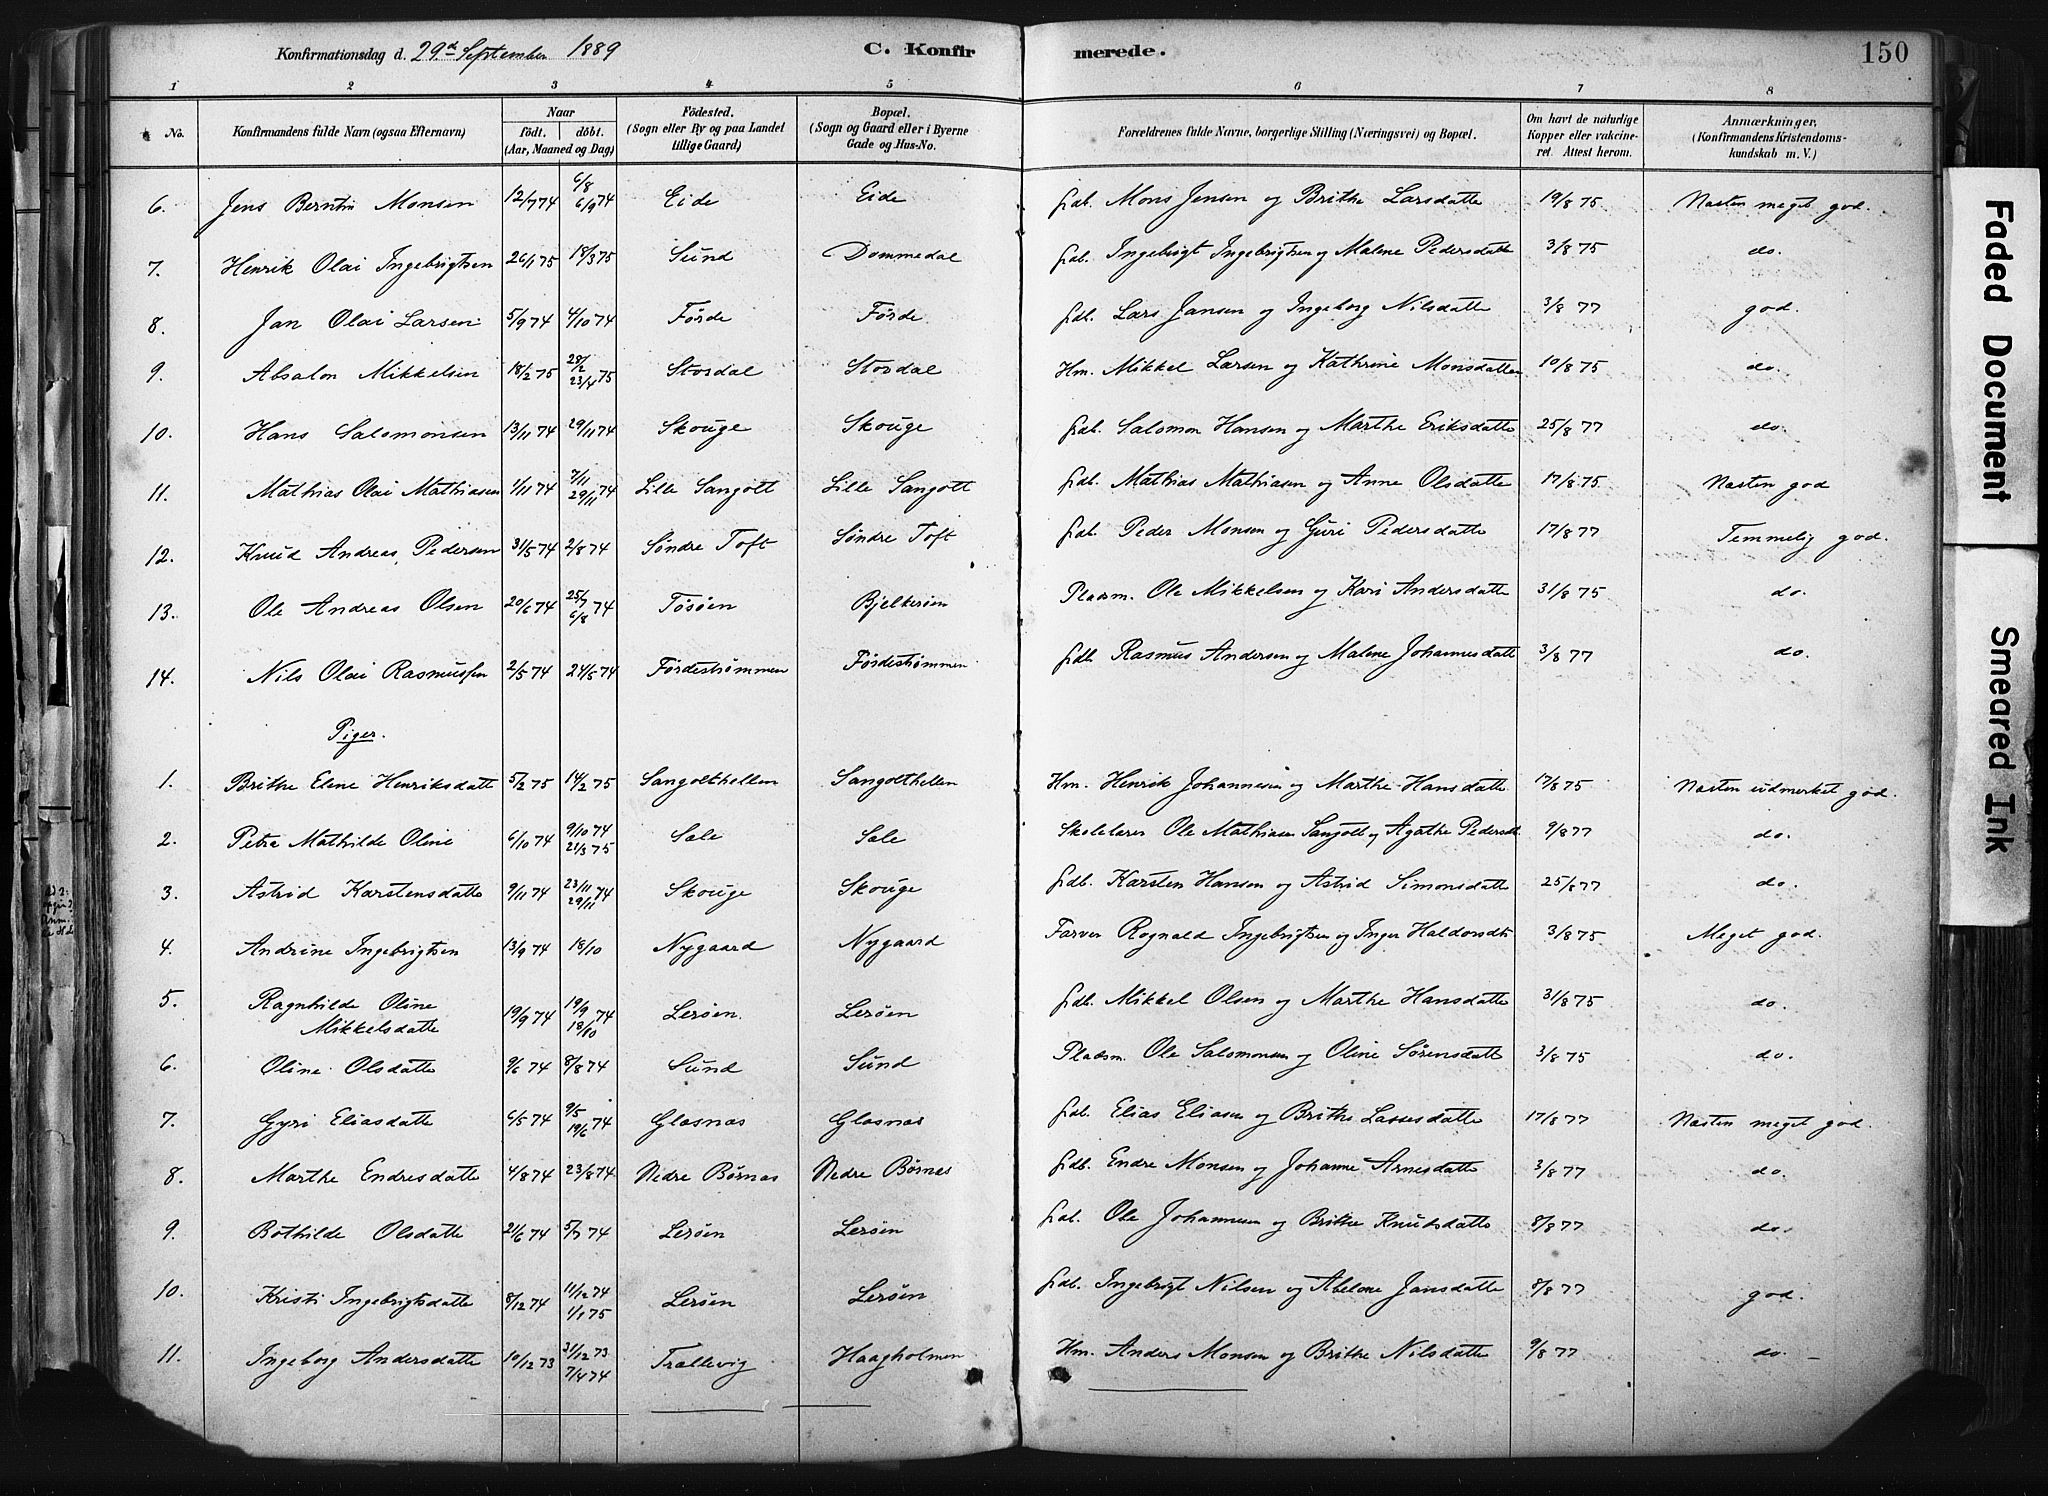 Konfirmationsdag d. 29.d September 1889 C. Konfirmerede. 150
1 2 3 4 5 6 7 8
No. Konfirmandens fulde Navn (ogsaa Efternavn) Naar födt. döbt. (Aar, Maaned og Dag) Födested. (Sogn eller By og paa Landet tillige Gaard) Bopæl. (Sogn og Gaard eller i Byerne Gade og Hus-No. Forældrenes fulde Navne, borgerlige Stilling (Næringsvei) og Bopæl. Om havt de naturlige Kopper eller vakcineret. Attest herom. Anmærkninger, (Konfirmandens Kristendomskundskab m. V.)
6. Jens Berntin Monsen 12/7 74 6/8 6/9 74 Eide Eide Gdb. Mons Jensen og Brithe Larsdatte 19/8 75 Næsten meget god.
7. Henrik Olai Ingebrigtsen 26/1 75 18/3 75 Sund Dommedal Gdb. Ingebrigt Ingebrigtsen og Malene Pedersdatte 3/8 75 do.
8. Jan Olai Larsen 5/9 74 4/10 74 Förde Förde Gdb. Lars Jansen og Ingeborg Nilsdatte 3/8 77 god.
9. Absalon Mikkelsen 18/2 75 28/2 23/4 75 Stordal Stordal Hm. Mikkel Larsen og Kathrine Monsdatter 10/8 75 do.
10. Hans Salomonsen 13/11 74 29/11 74 Skouge Skouge Gdb. Salomon Hansen og Marthe Eriksdatte 25/8 77 do.
11. Mathias Olai Mathiasen 1/11 74 7/11 29/11 74 Lille Sangolt Lille Sangolt Gdb. Mathias Mathiasen og Anne Olsdatte 17/8 75 Næsten god
12. Knud Andreas Pedersen 31/5 74 2/8 74 Söndre Toft Söndre Toft Gdb. Peder Monsen og Guri Pedersdatte 17/8 77 Temmelig god.
13. Ole Andreas Olsen 20/6 74 25/7 6/8 74 Tösöen Bjelkeröen Pladsm. Ole Mikkelsen og Kari Andersdatte 31/8 75 do.
14. Nils Olai Rasmussen 2/5 74 24/5 74 Fördeströmmen Fördeströmmen Gdb. Rasmus Andersen og Malene Johannesdatte 3/8 77 do.
Piger.
1. Brithe Elene Henriksdatte 5/2 75 14/2 75 Sangolthellen Sangolthellen Hm. Henrik Johannesen og Marthe Hansdatte 17/8 75 Næsten udmerket god.
2. Petra Mathilde Oline 6/10 74 9/10 74 21/3 75 Sale Sale Skolelærer Ole Mathiasen Sangolt og Agathe Pedersdt 9/8 77 do.
3. Astrid Karstensdatte 9/11 74 23/11 29/11 74 Skouge Skouge Gdb. Karsten Hansen og Astrid Simonsdatte 25/8 77 do.
4. Andrine Ingebrigtsen 13/9 74 18/10 Nygaard Nygaard Farver Rognald Ingebrigtsen og Inger Haldorsdt 3/8 75 Meget god.
5. Ragnhilde Oline Mikkelsdatte 19/9 74 19/9 18/10 74 Leröen. Leröen Gdb. Mikkel Olsen og Marthe Hansdatte 31/8 75 do.
6. Oline Olsdatte 9/6 74 8/8 74 Sund Sund Pladsm. Ole Salomonsen og Oline Sörensdatt 3/8 75 do.
7. Gyri Eliasdatte 6/5 74 9/5 19/6 74 Glæsnæs Glæsnæs Gdb. Elias Eliasen og Brithe Lassesdatte 17/8 77 Næsten meget god.
8. Marthe Endresdatte 4/8 74 23/8 74 Nedre Börnæs Nedre Börnæs Gdb. Endre Monsen og Johanne Arnesdatte 3/8 77 do.
9. Bothilde Olsdatte 21/6 74 5/7 74 Leröen Leröen Gdb. Ole Johannesen og Brithe Knudsdatte 8/8 77 do.
10. Kristi Ingebrigtsdatte 8/12 74 11/12 74 1/1 75 Leröen Leröen Gdb. Ingebrigt Nilsen og Abelone Jansdatte 8/8 77 god.
11. Ingeborg Andersdatte 10/12 73 31/12 73 7/4 74 Trællevig Haagholmen Hm. Anders Monsen og Brithe Nilsdatte 9/8 77 do.
Faded Document
Smeared Ink